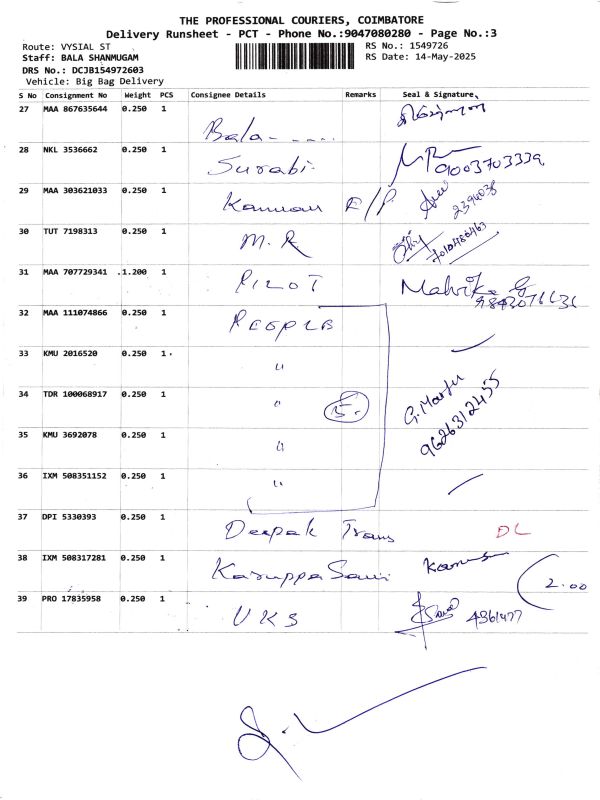 THE PROFESSIONAL COURIERS, COIMBATORE
Delivery Runsheet - PCT - Phone No.:9047080280 - Page No.:3
Route: VYSIAL ST
RS No.: 1549726
Staff: BALA SHANMUGAM
RS Date: 14-May-2025
DRS No.: DCJB154972603
Vehicle: Big Bag Delivery
S No Consignment No Weight PCS Consignee Details Remarks Seal & Signature
27 MAA 867635644 0.250 1 Bala-----
28 NKL 3536662 0.250 1 Surabi. 9003703339
29 MAA 303621033 0.250 1 Kannan E/P
30 TUT 7198313 0.250 1 M.R 7010486463
31 MAA 707729341 .1.200 1 PILOT
32 MAA 111074866 0.250 1 PEOPLE
33 KMU 2016520 0.250 1. "
34 TDR 100068917 0.250 1 " 5. 9626312455
35 KMU 3692078 0.250 1 "
36 IXM 508351152 0.250 1 "
37 DPI 5330393 0.250 1 Deepak Trans DL
38 IXM 508317281 0.250 1 KaruppaSami 2.00
39 PRO 17835958 0.250 1 UKS